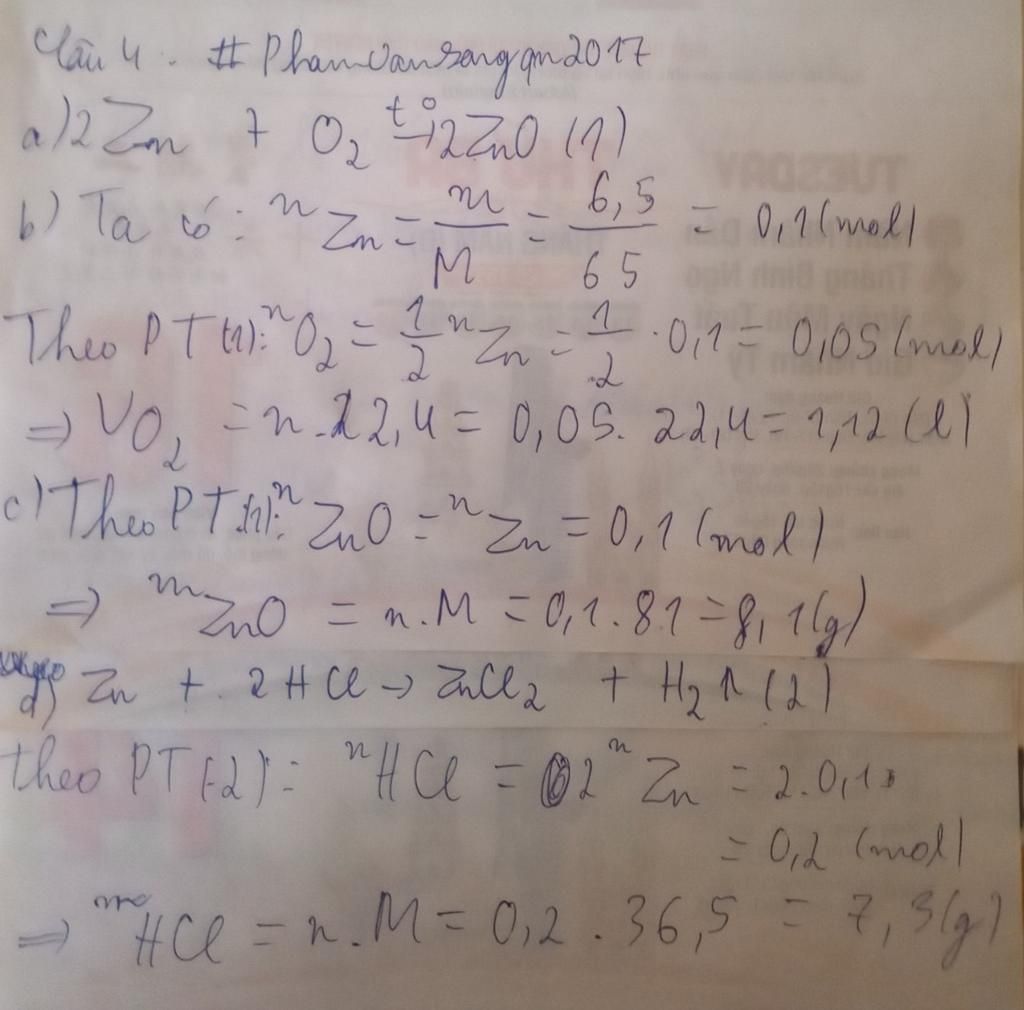 Câu 4. # Phamvansangqn2017
a) 2 Zn + O2 t°→ 2ZnO (1)
b) Ta có: nZn = m/M = 6,5/65 = 0,1 (mol)
Theo PT(1): nO2 = 1/2 nZn = 1/2 . 0,1 = 0,05 (mol)
=> VO2 = n.22,4 = 0,05. 22,4 = 1,12 (l)
c) Theo PT(1): nZnO = nZn = 0,1 (mol)
=> mZnO = n.M = 0,1.81 = 8,1(g)
d) Zn + 2HCl → ZnCl2 + H2↑ (2)
theo PT(2): nHCl = 2nZn = 2.0,1
= 0,2 (mol)
=> mHCl = n.M = 0,2 . 36,5 = 7,3(g)
TUESDAY